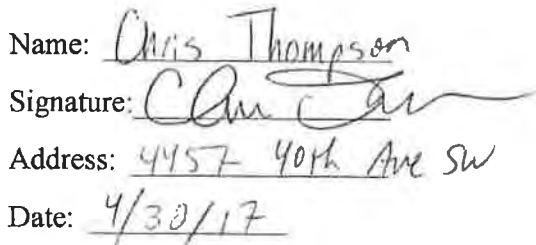 Name: Chris Thompson
Signature:
Address: 4457 40th Ave SW
Date: 4/30/17